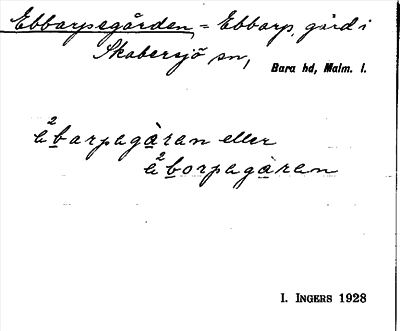 Ebbarpsgården, = Ebbarp, gård i
Skabersjö sn,
Bara hd, Malm. l.
²äbarpagàran eller
²äborpagàran
I. INGERS 1928